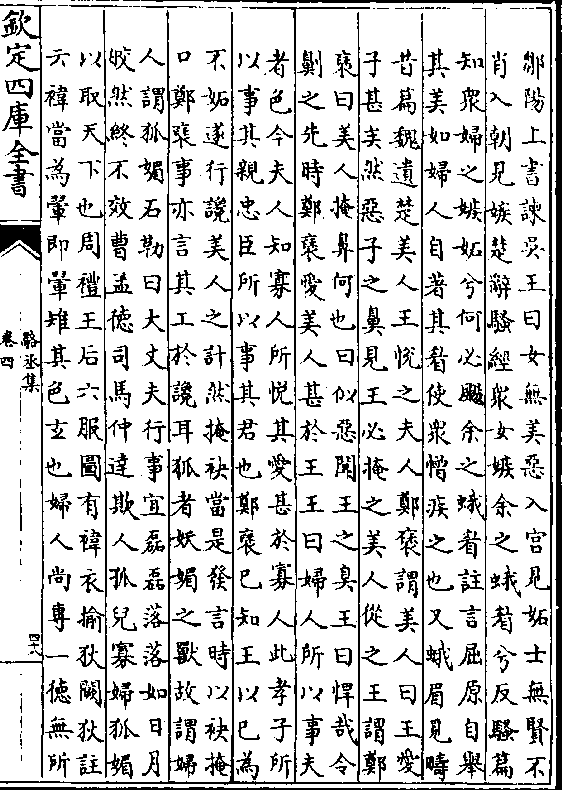 鄒陽上書諫吳王曰女無美惡入宮見妬士無賢不
肖入朝見嫉楚辭騷經衆女嫉余之蛾眉兮反騷篇
知衆婦之嫉妬兮何必颺余之蛾眉註言屈原自舉
其美如婦人自著其眉使衆憎疾之也又蛾眉見疇
昔篇魏遺楚美人王悅之夫人鄭褒謂美人曰王愛
子甚美然惡子之鼻見王必掩之美人從之王謂鄭
褒曰美人掩鼻何也曰似惡聞王之臭王曰悍哉令
劓之先時鄭褒愛美人甚於王王曰婦人所以事夫
者色今夫人知寡人所悅其愛甚於寡人此孝子所
以事其親忠臣所以事其君也鄭褒已知王以已為
不妬遂行讒美人之計然掩袂當是發言時以袂掩
口鄭褒事亦言其工於讒耳狐者妖媚之獸故謂婦
人謂狐媚石勒曰大丈夫行事宜磊磊落落如日月
皎然終不效曹孟德司馬仲達欺人孤兒寡婦狐媚
以取天下也周禮王后六服圖有褘衣揄狄闕狄註
云褘當為翬即翬雉其色玄也婦人尚專一德無所
欽定四庫全書
駱丞集
卷四
四十八